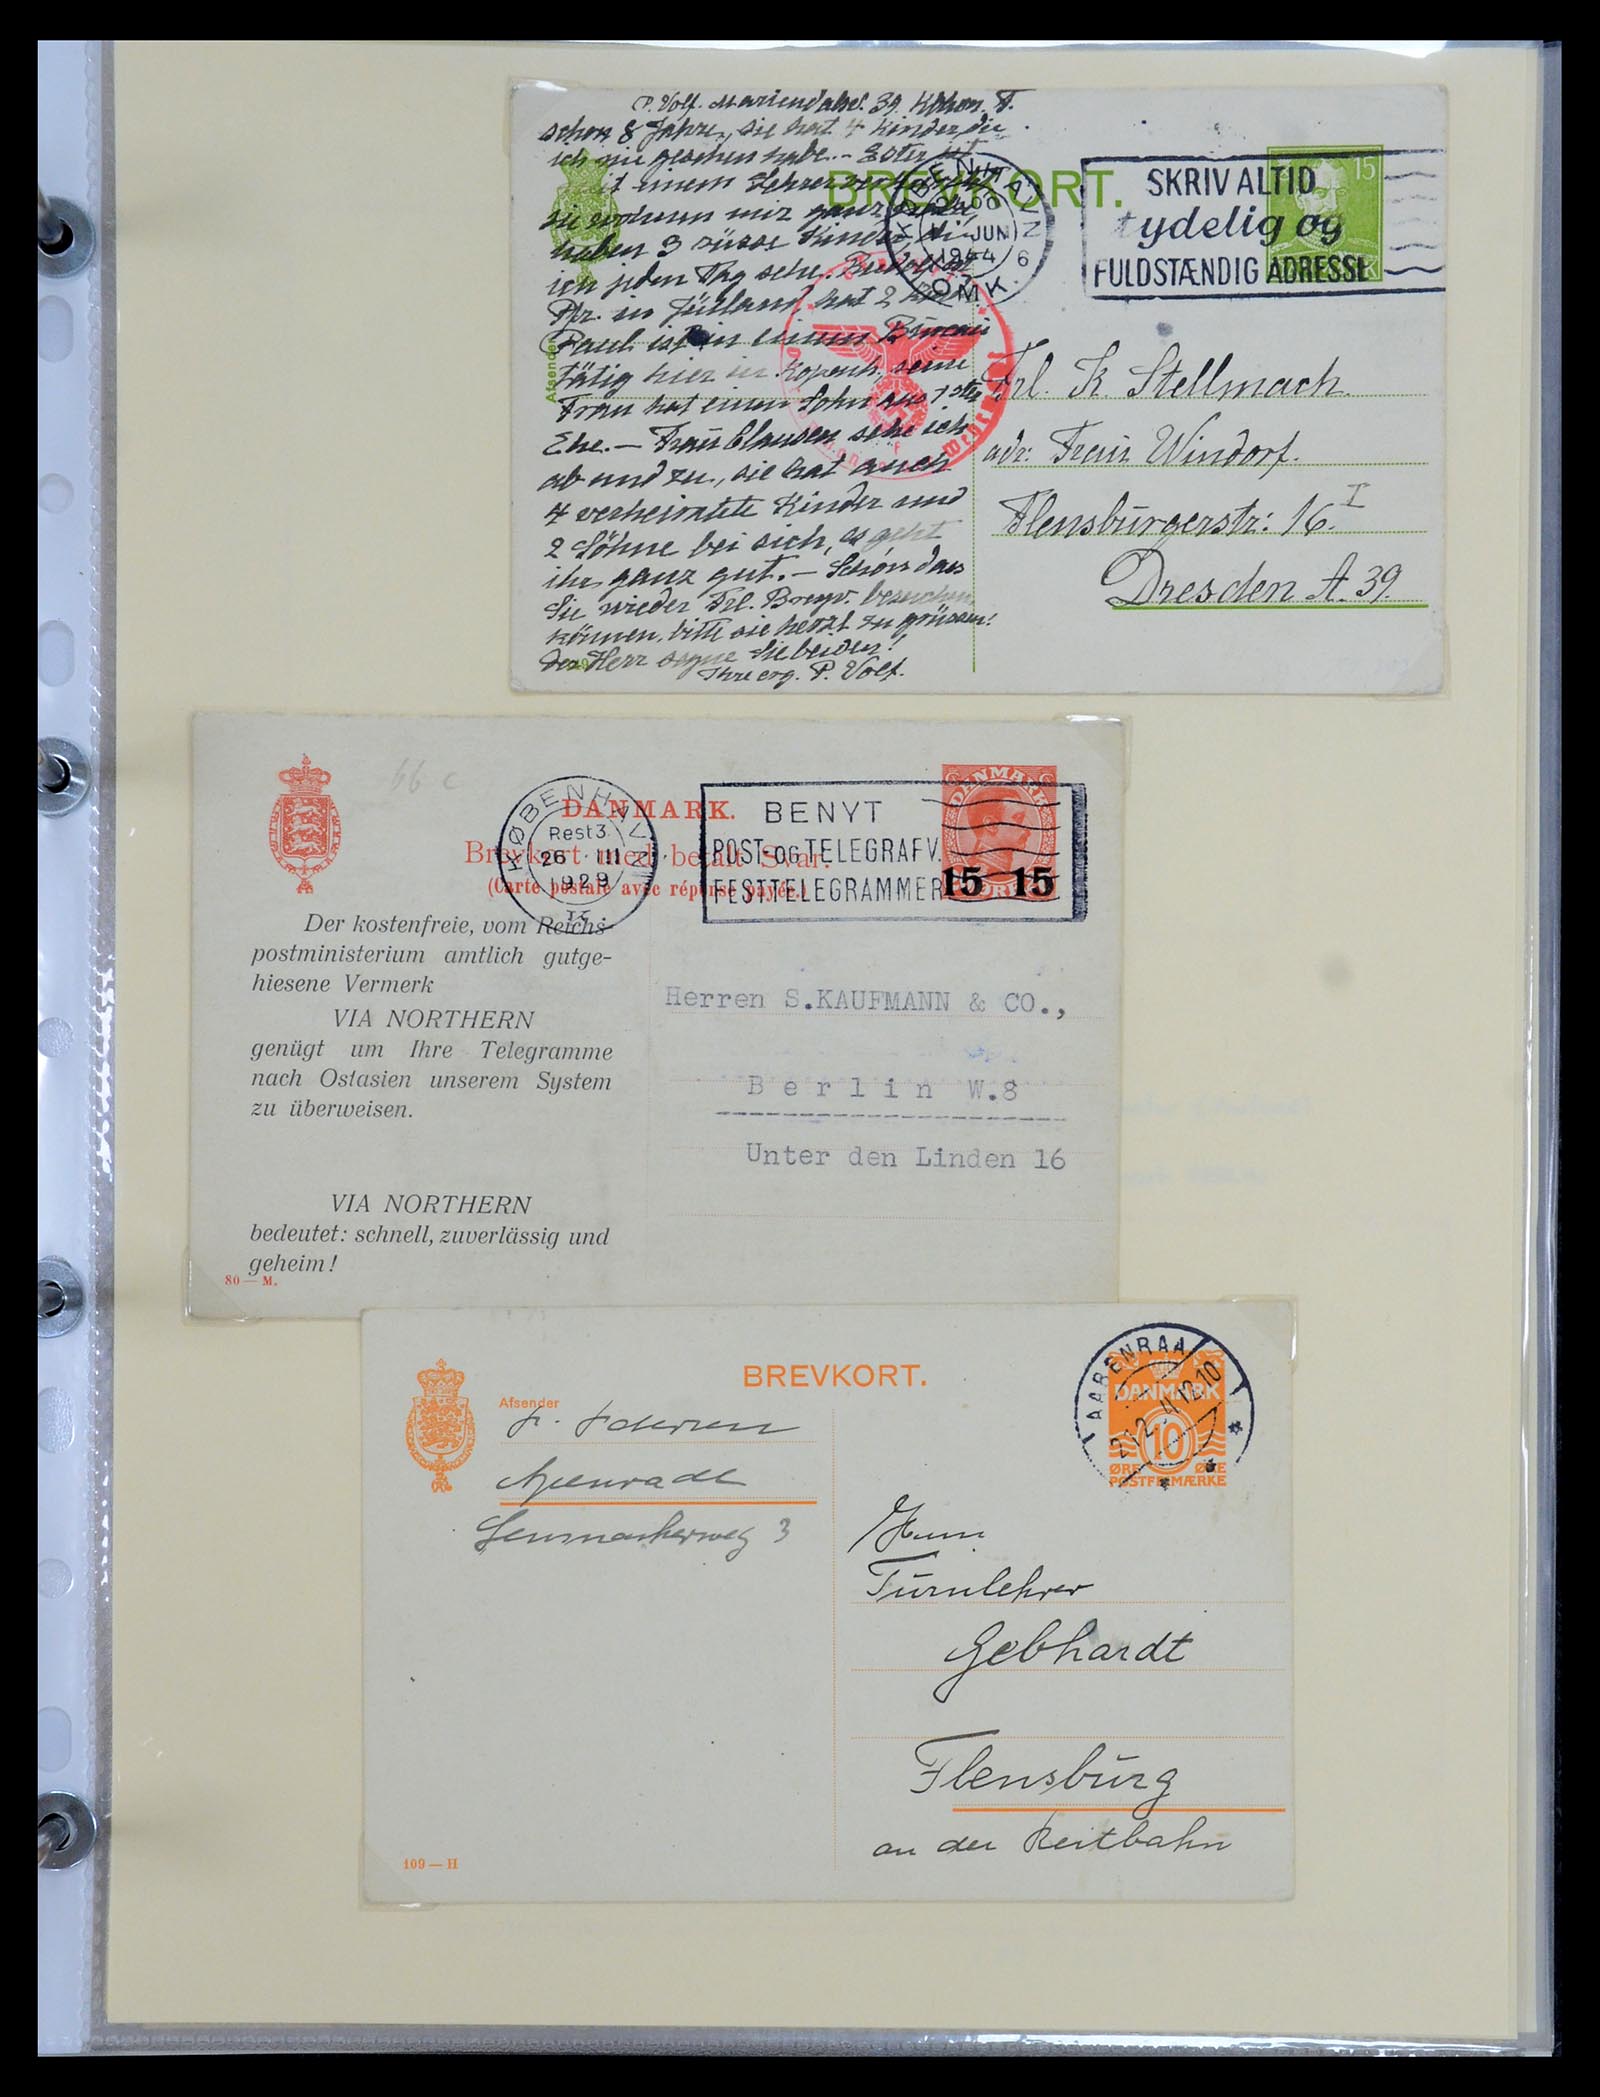 P. Volf. Mariendalsv. 39. Kbhvn. F.
schon 8 Jahre, sie hat 4 Kinder die
ich nie gesehen habe. - Ester ist
mit einem Lehrer verheiratet
sie wohnen mir ganz
haben 3 süsse Kinder, die
ich jeden Tag sehe. Rudolf ist
Pfr. in Jütland, hat 2
Paul ist in einem Büreau
tätig hier in Kopenh. seine
Frau hat einen Sohn aus 1ster
Ehe. — Frau Clausen sehe ich
ab und zu, sie hat auch
4 verheiratete Kinder und
2 Söhne bei sich, es geht
ihr ganz gut. — Schön dass
Sie wieder Frl. besuchen
können, bitte sie herzl. zu grüssen!
der Herr segne Sie beiden!
Ihre erg. P. Volf.
Afsender
BREVKORT.
KØBENHAVN
JUN
1944 6
OMK.
SKRIV ALTID
tydelig og
FULDSTÆNDIG ADRESSE
15
Frl. K. Stellmach.
adr: Frau Windorf.
Flensburgerstr: 16. I
Dresden A. 39.
66 c
DANMARK.
Brevkort med betalt Svar.
(Carte postale avec réponse payée.)
KØBENHAVN
Rest 3
26 III
1929
K.
BENYT
POST- OG TELEGRAFV.
FESTTELEGRAMMER
DANMARK
15 15
Der kostenfreie, vom Reichs-
postministerium amtlich gutge-
hiesene Vermerk
VIA NORTHERN
genügt um Ihre Telegramme
nach Ostasien unserem System
zu überweisen.
VIA NORTHERN
bedeutet: schnell, zuverlässig und
geheim!
80 — M.
Herren S.KAUFMANN & CO.,
Berlin W.8
Unter den Linden 16
BREVKORT.
Afsender
Apenrade
3
AARENRAA
12.10
DANMARK
10
ØRE ØRE
POSTFRIMÆRKE
Herrn
Turnlehrer
Gebhardt
Flensburg
an der Reitbahn
109 — H